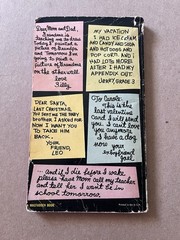 Dear Mom and Dad,
Grandma is
teaching me to draw
Today I painted a
picture of Grandpa
and Tomorrow I'm
going to paint a
picture of Grandma
on the other wall
Love
Billy
MY VACATION
I HAD ICE CREAM
AND CANDY AND SODA
AND HOT DOGS AND
POP CORN AND I
HAD LOTS MORE
AFTER I HAD MY
APPENDIX OUT.
JENNY, GRADE 3
DEAR SANTA,
LAST CHRISTMAS
YOU SENT ME THE BABY
BROTHER I ASKED FOR
NOW I WANT YOU
TO TAKE HIM
BACK.
YOUR
FRIEND,
LEO
To Carole:
This is the
last valentine
card I will send
you. I can't love
you anymore.
I have a dog
now
your
ex boyfriend
Joel
... and if I die before I wake
please have Mom call my teacher
and tell her I wont be in
school tomorrow.